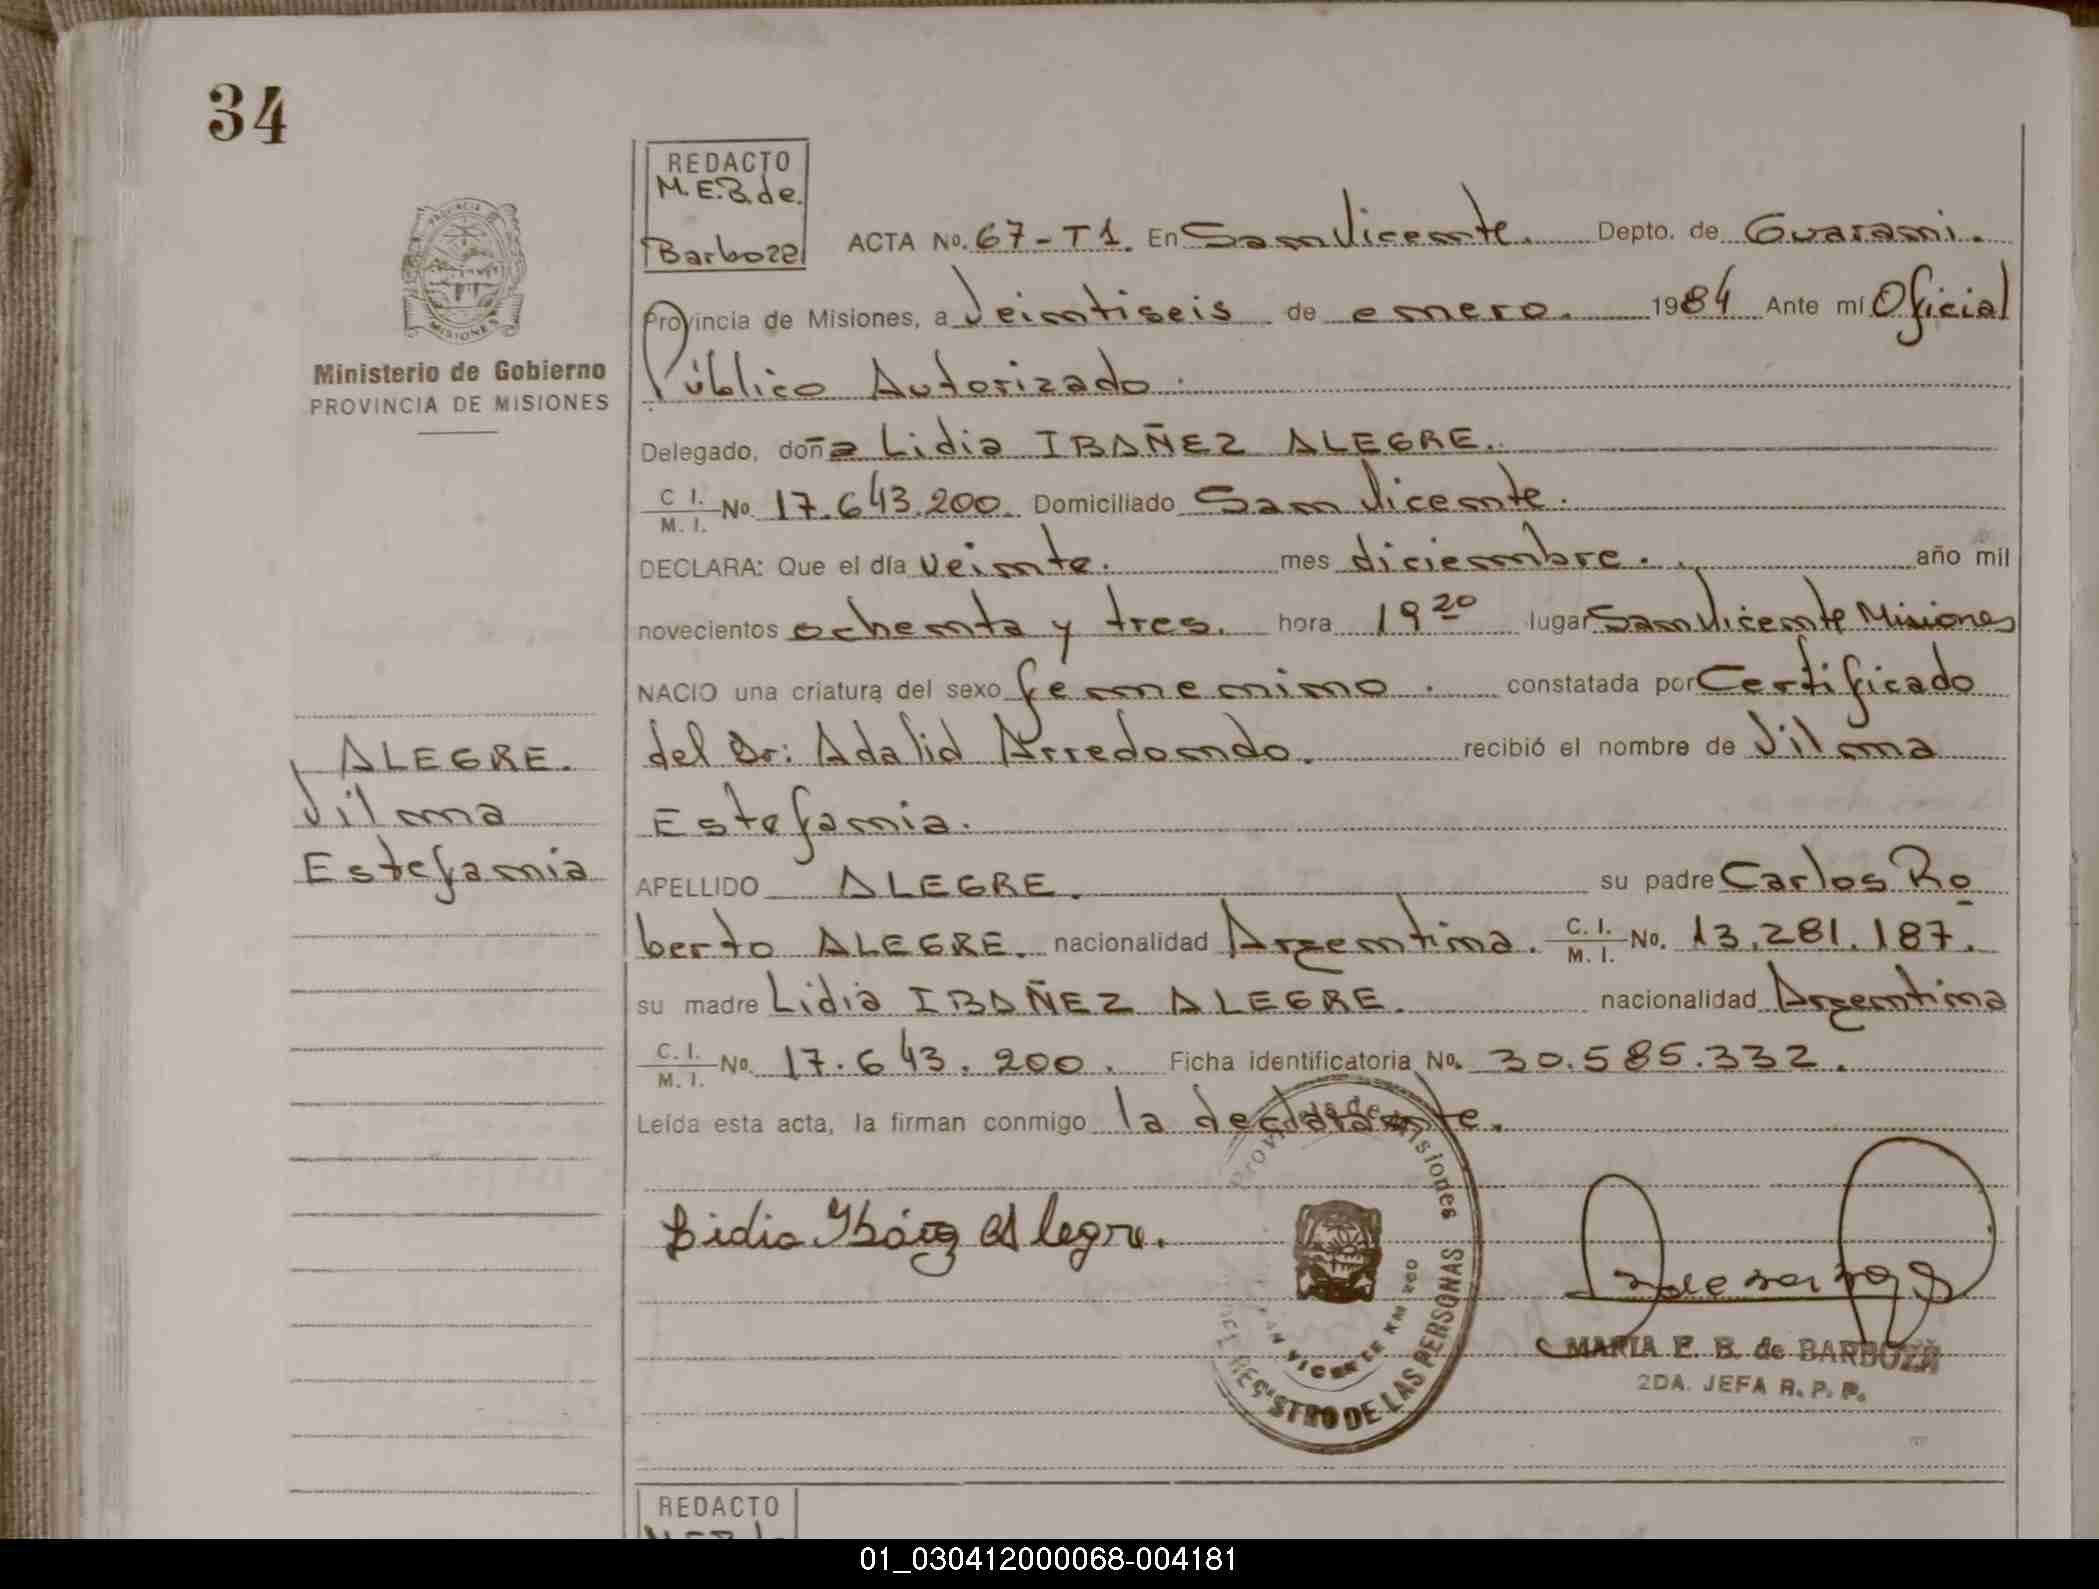 34
REDACTO
M.E.B. de
Barboza
ACTA No. 67-T1. En San Vicente. Depto. de Guarani.
PROVINCIA DE
MISIONES
Provincia de Misiones, a Veintiseis de enero. 1984 Ante mí Oficial
Público Autorizado.
Ministerio de Gobierno
PROVINCIA DE MISIONES
Delegado, doña Lidia IBAÑEZ ALEGRE.
C I. / M. I. No. 17.643.200. Domiciliado San Vicente.
DECLARA: Que el día veinte. mes diciembre. año mil
novecientos ochenta y tres. hora 19 20 lugar San Vicente Misiones
NACIO una criatura del sexo femenino. constatada por Certificado
del Dr: Adalid Arredondo. recibió el nombre de Vilma
Estefania.
ALEGRE.
Vilma
Estefania
APELLIDO ALEGRE. su padre Carlos Ro
berto ALEGRE. nacionalidad Argentina. C. I. / M. I. No. 13.281.187.
su madre Lidia IBAÑEZ ALEGRE. nacionalidad Argentina
C. I. / M. I. No. 17.643.200. Ficha identificatoria No. 30.585.332.
Leída esta acta, la firman conmigo la declarante.
Provincia de Misiones
REGISTRO DE LAS PERSONAS
SAN VICENTE KM 200
Lidia Ibáñez Alegre.
MARIA E. B. de BARBOZA
2DA. JEFA R. P. P.
REDACTO
01_030412000068-004181